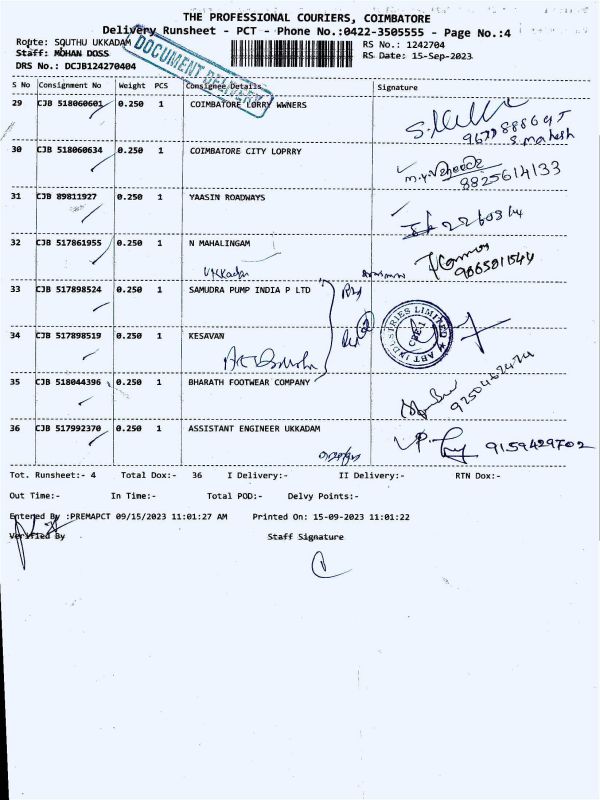 THE PROFESSIONAL COURIERS, COIMBATORE
Delivery Runsheet - PCT - Phone No.:0422-3505555 - Page No.:4
Route: SOUTHU UKKADAM
RS No.: 1242704
Staff: MOHAN DOSS
RS Date: 15-Sep-2023
DRS No.: DCJB124270404
DOCUMENT DELIVERY
S No Consignment No Weight PCS Consignee Details Signature
29 CJB 518060601 0.250 1 COIMBATORE LORRY WWNERS
S. Mahesh
30 CJB 518060634 0.250 1 COIMBATORE CITY LOPRRY
8825614133
31 CJB 89811927 0.250 1 YAASIN ROADWAYS
32 CJB 517861955 0.250 1 N MAHALINGAM
9865811544
Ukkadam
33 CJB 517898524 0.250 1 SAMUDRA PUMP INDIA P LTD
ABT INDUSTRIES LIMITED
CBE-1
34 CJB 517898519 0.250 1 KESAVAN
35 CJB 518044396 0.250 1 BHARATH FOOTWEAR COMPANY
36 CJB 517992370 0.250 1 ASSISTANT ENGINEER UKKADAM
9159429702
Tot. Runsheet:- 4 Total Dox:- 36 I Delivery:- II Delivery:- RTN Dox:-
Out Time:- In Time:- Total POD:- Delvy Points:-
Entered By :PREMAPCT 09/15/2023 11:01:27 AM Printed On: 15-09-2023 11:01:22
Verified By Staff Signature